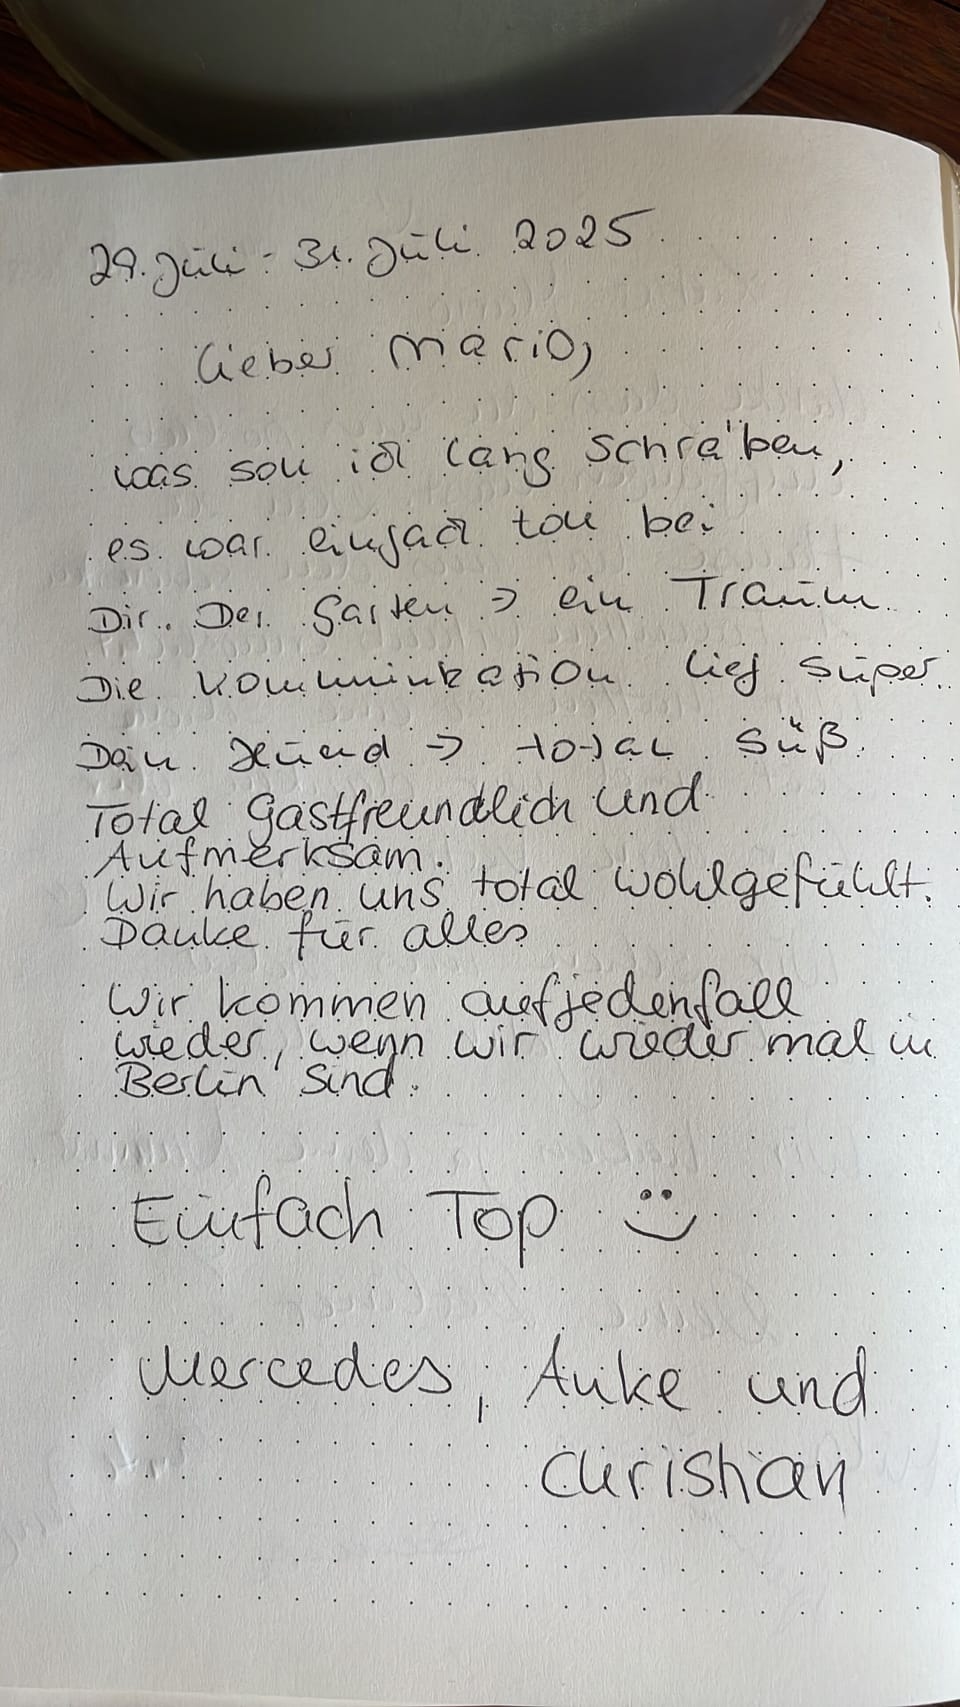 29. Juli - 31. Juli 2025
Lieber Mario,
was soll ich lang schreiben,
es war einfach toll bei
Dir. Der Garten → ein Traum
Die Kommunikation lief super.
Dein Hund → total süß.
Total Gastfreundlich und
Aufmerksam.
Wir haben uns total wohlgefühlt.
Danke für alles
Wir kommen aufjedenfall
wieder, wenn wir wieder mal in
Berlin sind.
Einfach Top ü
Mercedes, Anke und
Christian